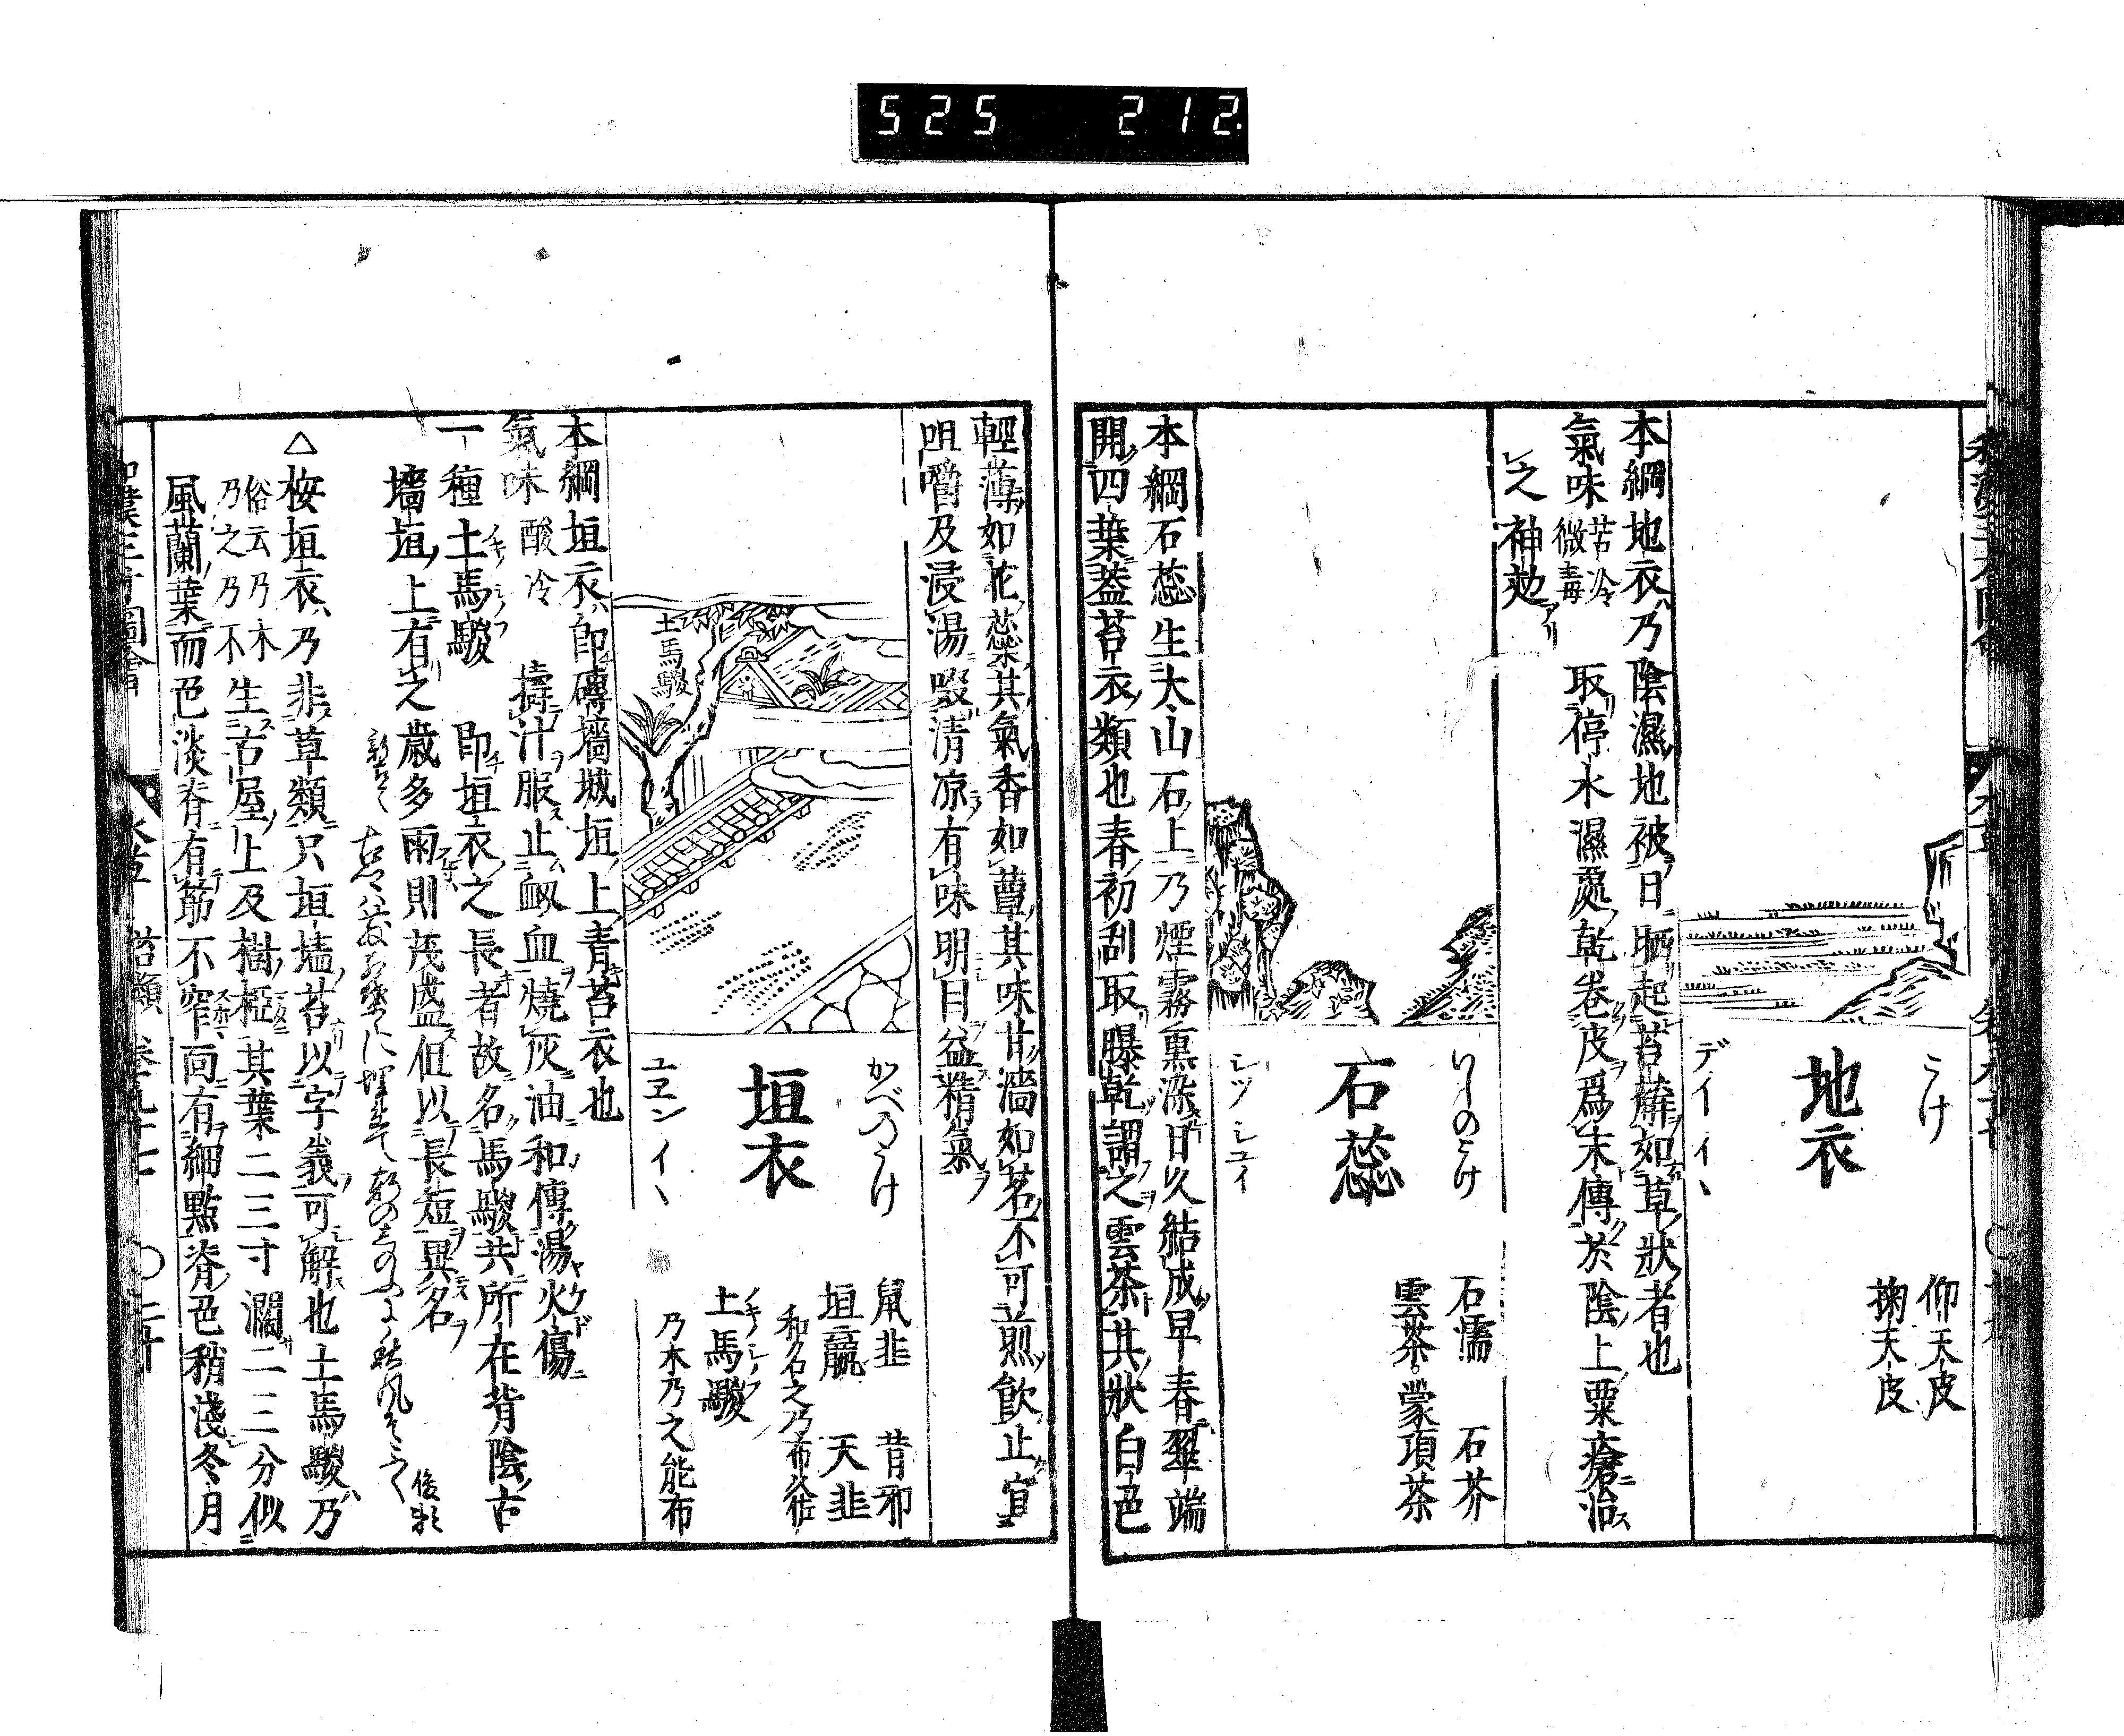 525 212.
こけ
地衣
デイ イヽ
仰天皮
掬天皮
本綱地衣乃陰濕地被日晒起苔蘚如草狀者也
氣味苦冷微毒 取停水濕處乾卷皮爲末傳於陰上粟瘡治
之神効アリ
石蕊
シツ シユイ
石濡 石芥
雲茶 蒙頂茶
本綱石蕊生太山石上乃煙霧熏染日久結成早春翠端
開四葉蓋苔衣類也春初刮取曝乾謂之雲茶其狀白色
輕薄如花蕊其氣香如蕈其味甘濇如茗不可煎飲止宜
咀嚼及浸湯啜清凉有味明目益精氣
土馬騣
かべのこけ
垣衣
ユヱン イヽ
鼠韭 昔邪
垣蠃 天韭
土馬騣
乃木乃之能布
本綱垣衣卽磚墻城垣上青苔衣也
氣味酸冷 擣汁服止衂血燒灰油和傳湯火傷
一種土馬騣 卽垣衣之長者故名馬騣共所在背陰古
墻垣上有之歲多雨則茂盛但以長短異名
△按垣衣乃非草類只垣墻苔以字義可解也土馬騣乃
俗云乃木
乃之乃不
生古屋上及樹椏其葉二三寸濶二三分似
風蘭葉而色淡脊有筋不窄靣有細點脊色稍淺冬月
苔類